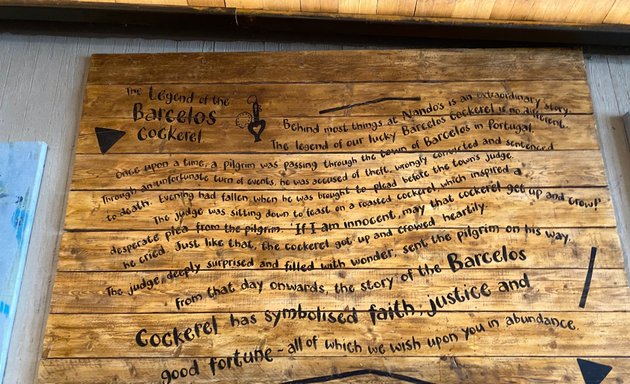 The Legend of the
Barcelos
Cockerel
Behind most things at Nandos is an extraordinary story.
The legend of our lucky Barcelos Cockerel is no different.
Once upon a time, a pilgrim was passing through the town of Barcelos in Portugal.
Through an unfortunate turn of events, he was accused of theft, wrongly convicted and sentenced
to death. Evening had fallen when he was brought to plead before the town's judge.
The judge was sitting down to feast on a roasted cockerel which inspired a
desperate plea from the pilgrim. 'If I am innocent, may that cockerel get up and crow!'
he cried. Just like that, the cockerel got up and crowed heartily.
The judge, deeply surprised and filled with wonder, sent the pilgrim on his way.
From that day onwards, the story of the Barcelos
Cockerel has symbolised faith, justice and
good fortune - all of which we wish upon you in abundance.